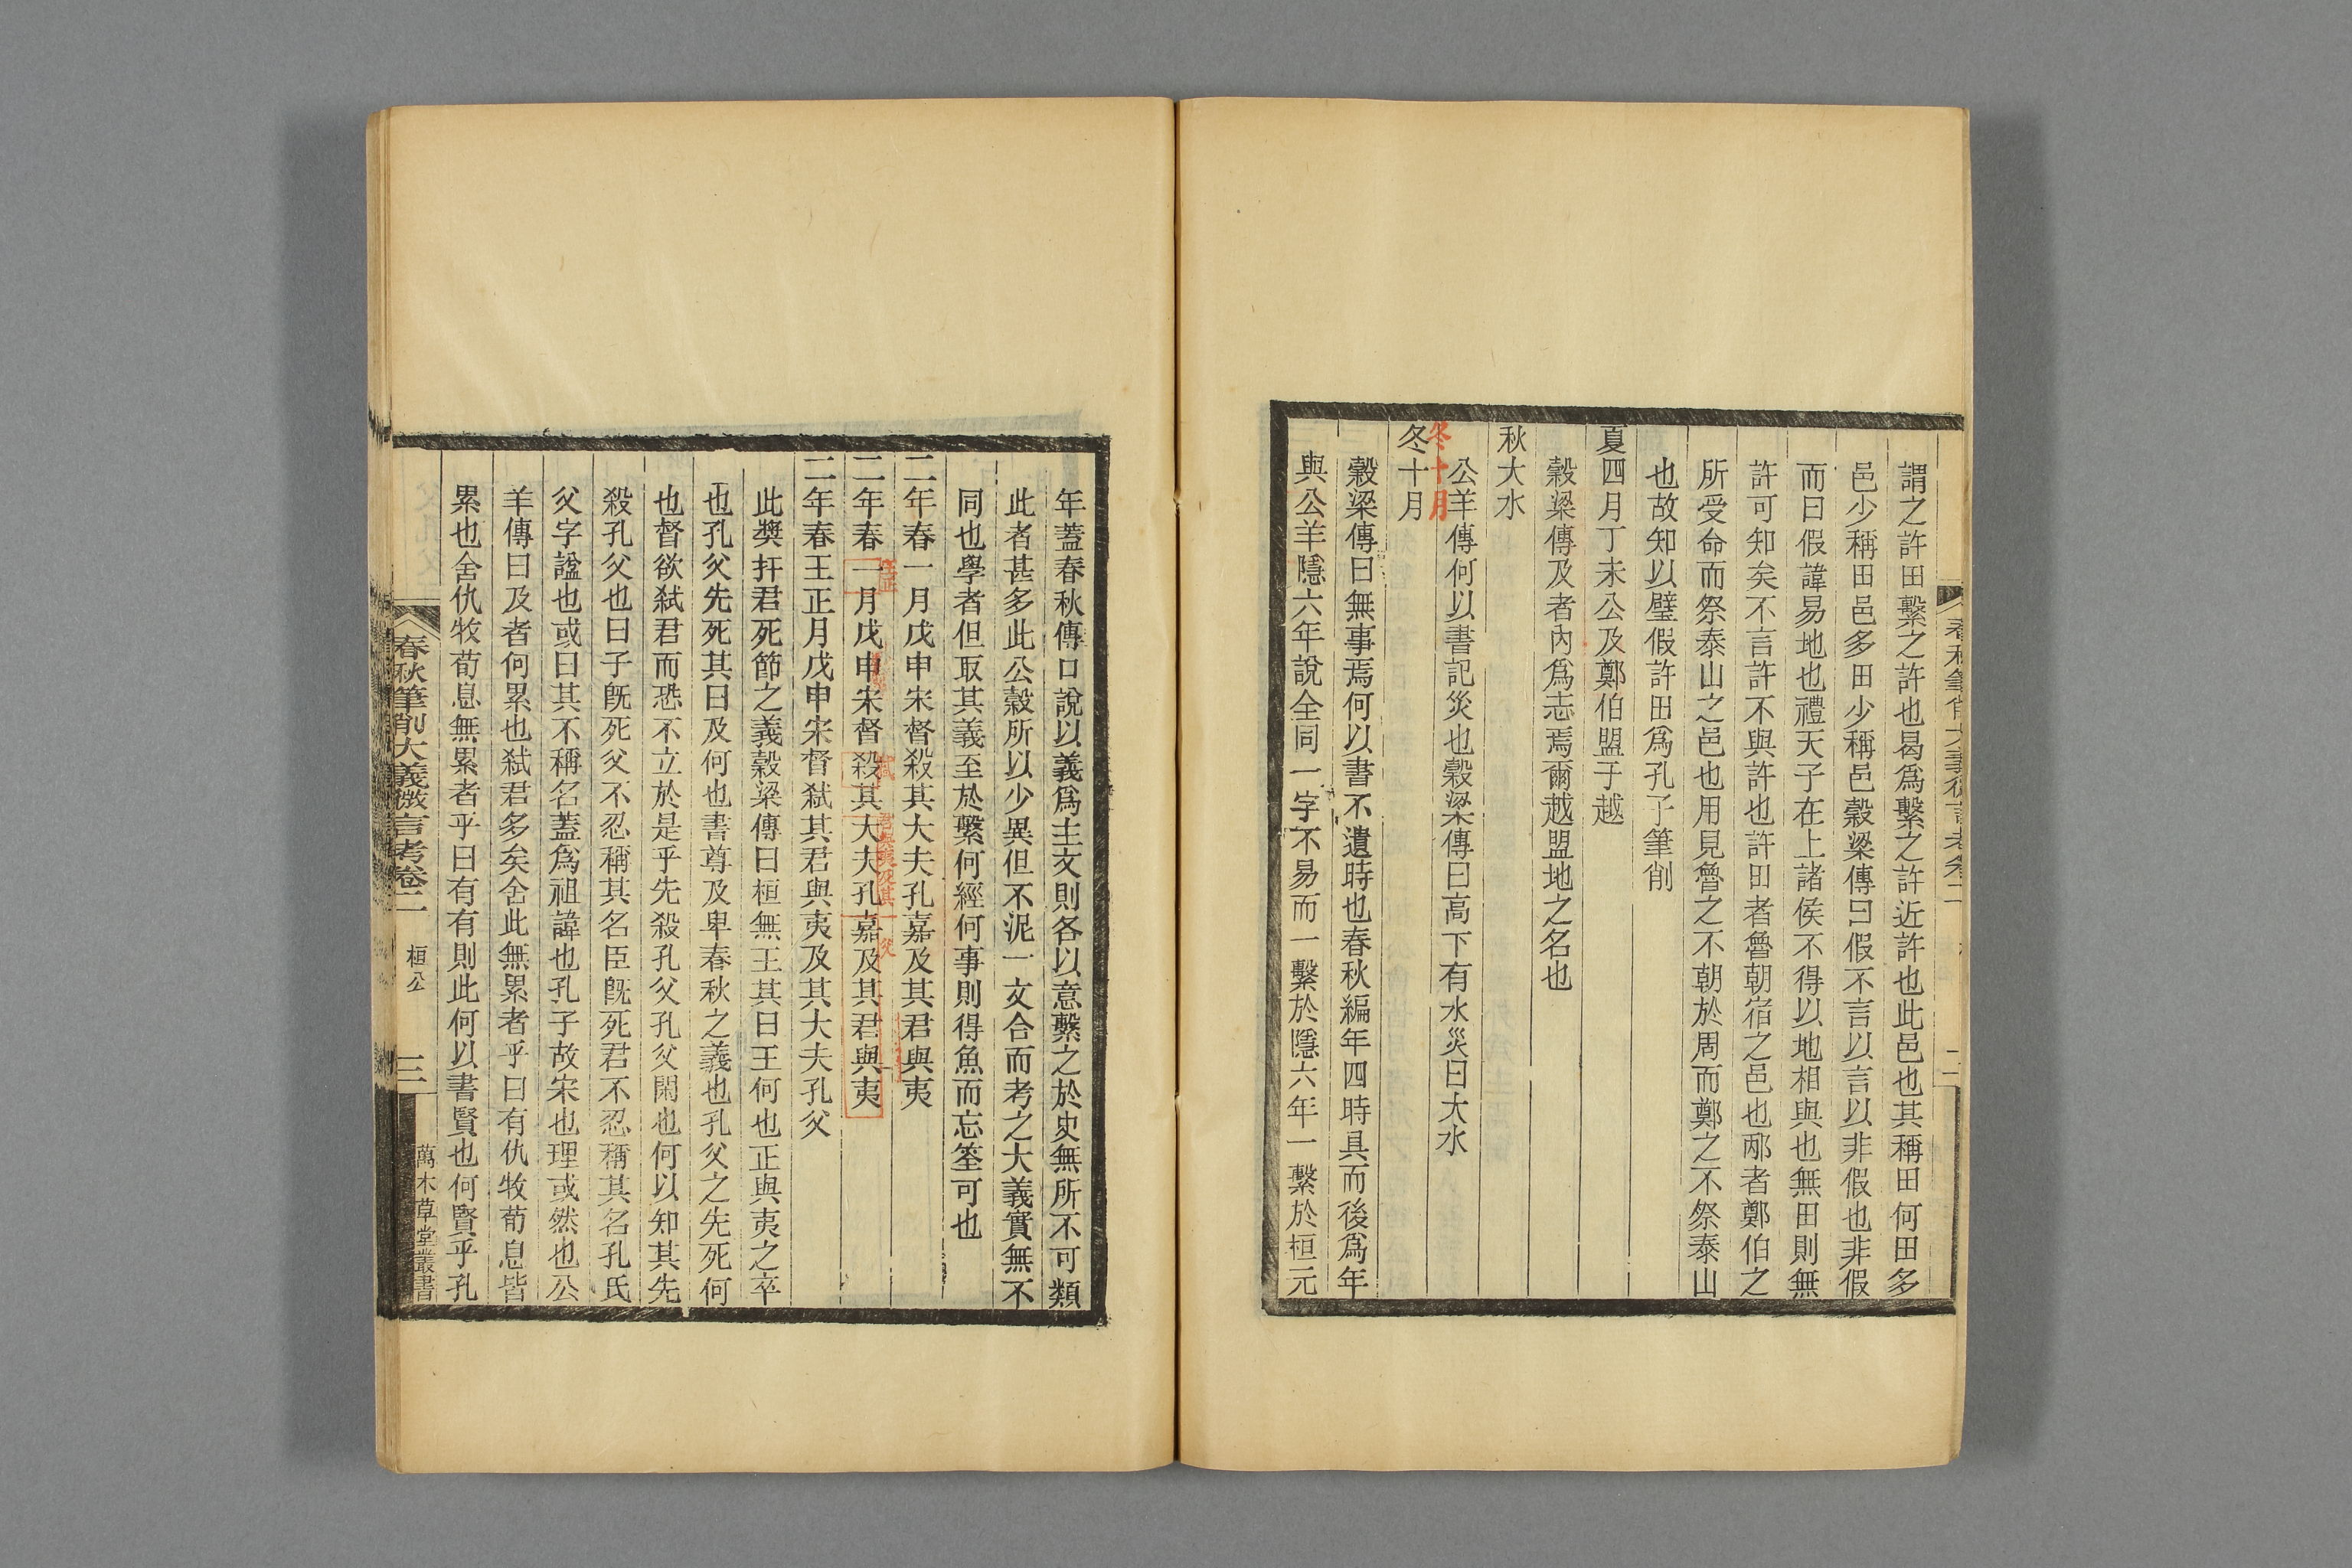 謂之許田繫之許也曷爲繫之許近許也此邑也其稱田何田多
邑少稱田邑多田少稱邑穀梁傳曰假不言以言以非假也非假
而曰假諱易地也禮天子在上諸侯不得以地相與也無田則無
許可知矣不言許不與許也許田者魯朝宿之邑也邴者鄭伯之
所受命而祭泰山之邑也用見魯之不朝於周而鄭之不祭泰山
也故知以璧假許田爲孔子筆削
夏四月丁未公及鄭伯盟于越
穀梁傳及者內爲志焉爾越盟地之名也
秋大水
公羊傳何以書記災也穀梁傳曰高下有水災曰大水
冬十月
冬十月
穀梁傳曰無事焉何以書不遺時也春秋編年四時具而後爲年
與公羊隱六年說全同一字不易而一繫於隱六年一繫於桓元
年蓋春秋傳口說以義爲主文則各以意繫之於史無所不可類
此者甚多此公穀所以少異但不泥一文合而考之大義實無不
同也學者但取其義至於繫何經何事則得魚而忘筌可也
二年春一月戊申宋督殺其大夫孔嘉及其君與夷
王正
弑
君與夷及其
父
二年春一月戊申宋督殺其大夫孔嘉及其君與夷
二年春王正月戊申宋督弑其君與夷及其大夫孔父
此獎扞君死節之義穀梁傳曰桓無王其曰王何也正與夷之卒
也孔父先死其曰及何也書尊及卑春秋之義也孔父之先死何
也督欲弑君而恐不立於是乎先殺孔父孔父閑也何以知其先
殺孔父也曰子既死父不忍稱其名臣既死君不忍稱其名孔氏
父字諡也或曰其不稱名蓋爲祖諱也孔子故宋也理或然也公
羊傳曰及者何累也弑君多矣舍此無累者乎曰有仇牧荀息皆
累也舍仇牧荀息無累者乎曰有有則此何以書賢也何賢乎孔
春秋筆削大義微言考卷二 桓公 三 萬木草堂叢書